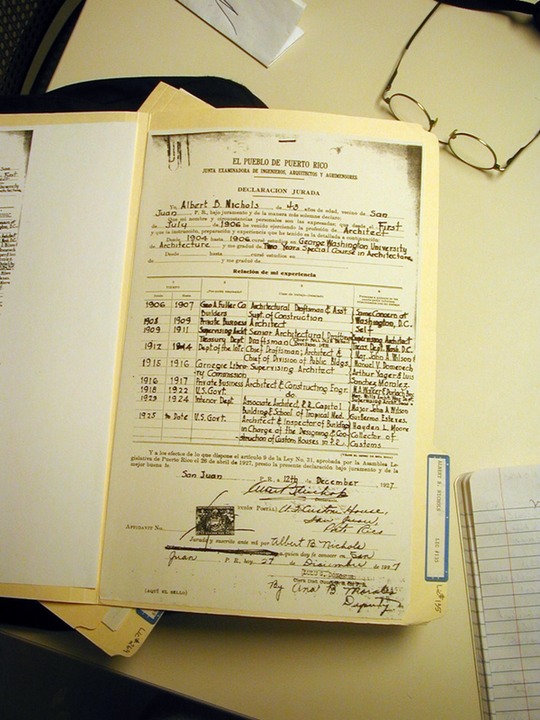 EL PUEBLO DE PUERTO RICO
JUNTA EXAMINADORA DE INGENIEROS, ARQUITECTOS Y AGRIMENSORES
DECLARACION JURADA
Yo, Albert B. Nichols de 48 años de edad, vecino de San
Juan P. R., bajo juramento y de la manera más solemne declaro:
Que mi nombre y circunstancias personales son los expresados; que desde el First
de July de 1906 he venido ejerciendo la profesión de Architect
y que la instrucción, preparatoria y experiencia que he tenido es la detallada a continuación:
Desde 1904 hasta 1906 cursé estudios en George Washington University
de Architecture y me gradué de Two Years Special Course in Architecture
Desde hasta cursé estudios en
de y me gradué de
Relación de mi experiencia
1906 1907 Geo. A. Fuller Co. Architectural Draftsman & Asst Same Concern at
Builders Supt. of Construction Washington, D.C.
1908 1909 Private Business Architect Self
1909 1911 Supervising Archt Senior Architectural Draftsman Supervising Architect
Treasury Dept Draftsman Treas. Dept. Wash. D.C.
1912 1914 Dep. of the Int. Chief Draftsman; Architect & Maj. John A. Wilson
Chief of Division of Public Bldgs. Manuel V. Domenech
1915 1916 Carnegie Libra- Supervising Architect Arthur Yager & Luis
ry Commission Sanchez Morales
1916 1917 Private Business Architect & Constructing Engr.
1918 1922 U.S. Govt. do
1923 1924 Interior Dept. Associate Architect P.R. Capitol Major John A. Wilson
Building & School of Tropical Med. Guillermo Esteves
1925 to Date U.S. Govt. Architect & Inspector of Building Hayden L. Moore
in Charge of the Designing & Con- Collector of
struction of Custom Houses in P.R. Customs
Y a los efectos de lo que dispone el artículo 9 de la Ley No. 31, aprobada por la Asamblea Le-
gislativa de Puerto Rico el 26 de abril de 1927, presto la presente declaración bajo juramento y a la
mejor buena fe.
San Juan P. R., a 12th de December 1927
Albert B. Nichols
U.S. Custom House,
San Juan,
Porto Rico
AFFIDAVIT NO.
Jurado y suscrito ante mí por Albert B. Nichols
a quien doy fe conocer en San
Juan P. R., hoy 27 de December de 1927
By Ana B.
Deputy
(AQUI EL SELLO)
ALBERT B. NICHOLS LIC #135